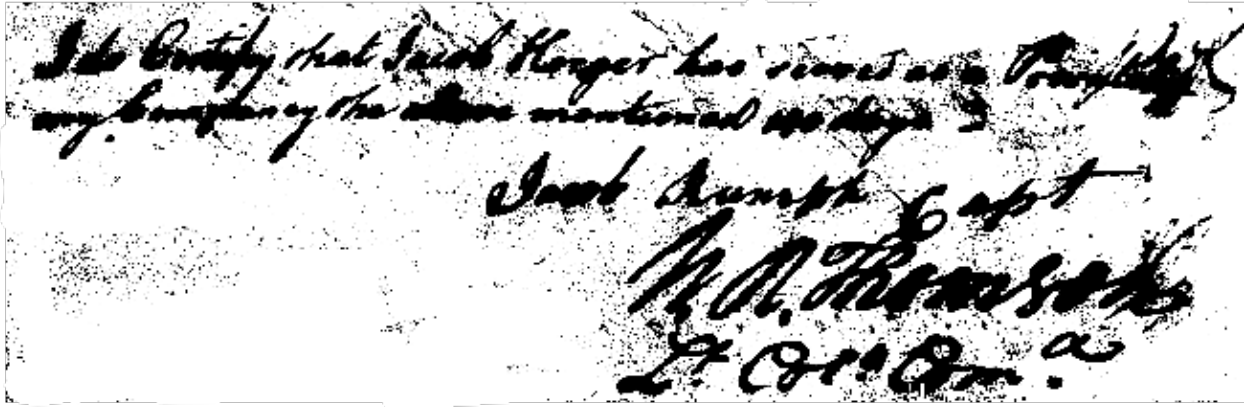 I do Certify that Jacob Horger has served as a
my Company the above mentioned days
Jacob Rumph Capt
W. R. Thomson
Lt. Col. Com.a